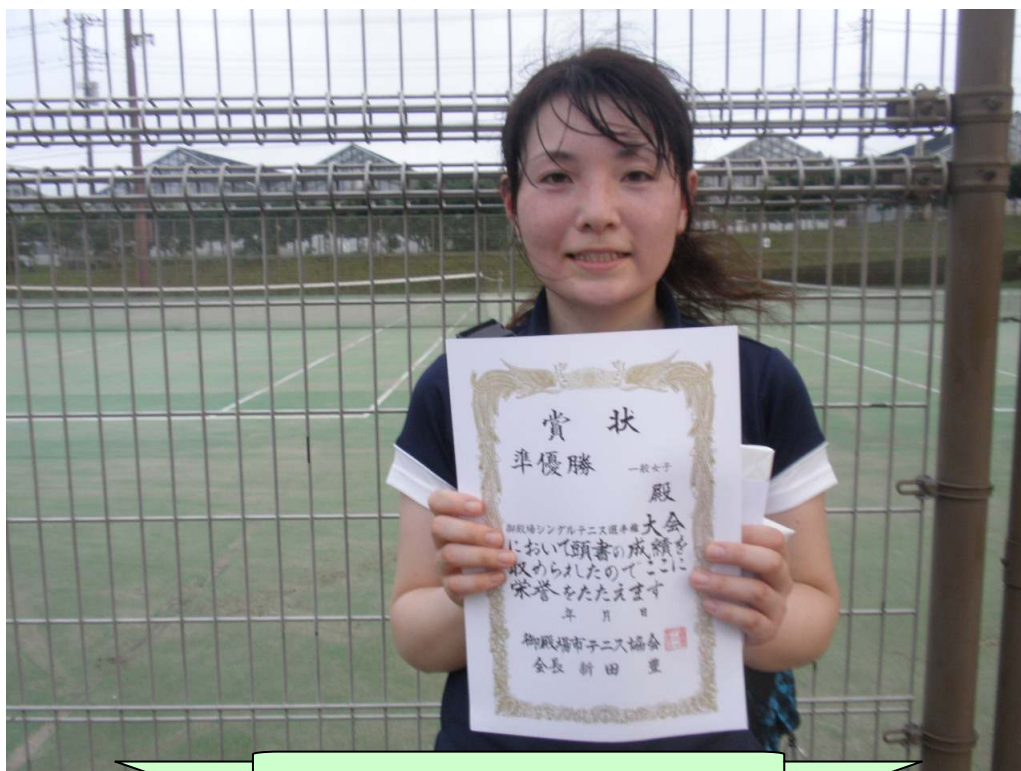 賞状
準優勝 一般女子
殿
御殿場シングルテニス選手権大会
において頭書の成績を
収められたのでここに
栄誉をたたえます
年 月 日
御殿場市テニス協会
会長 新田 豊